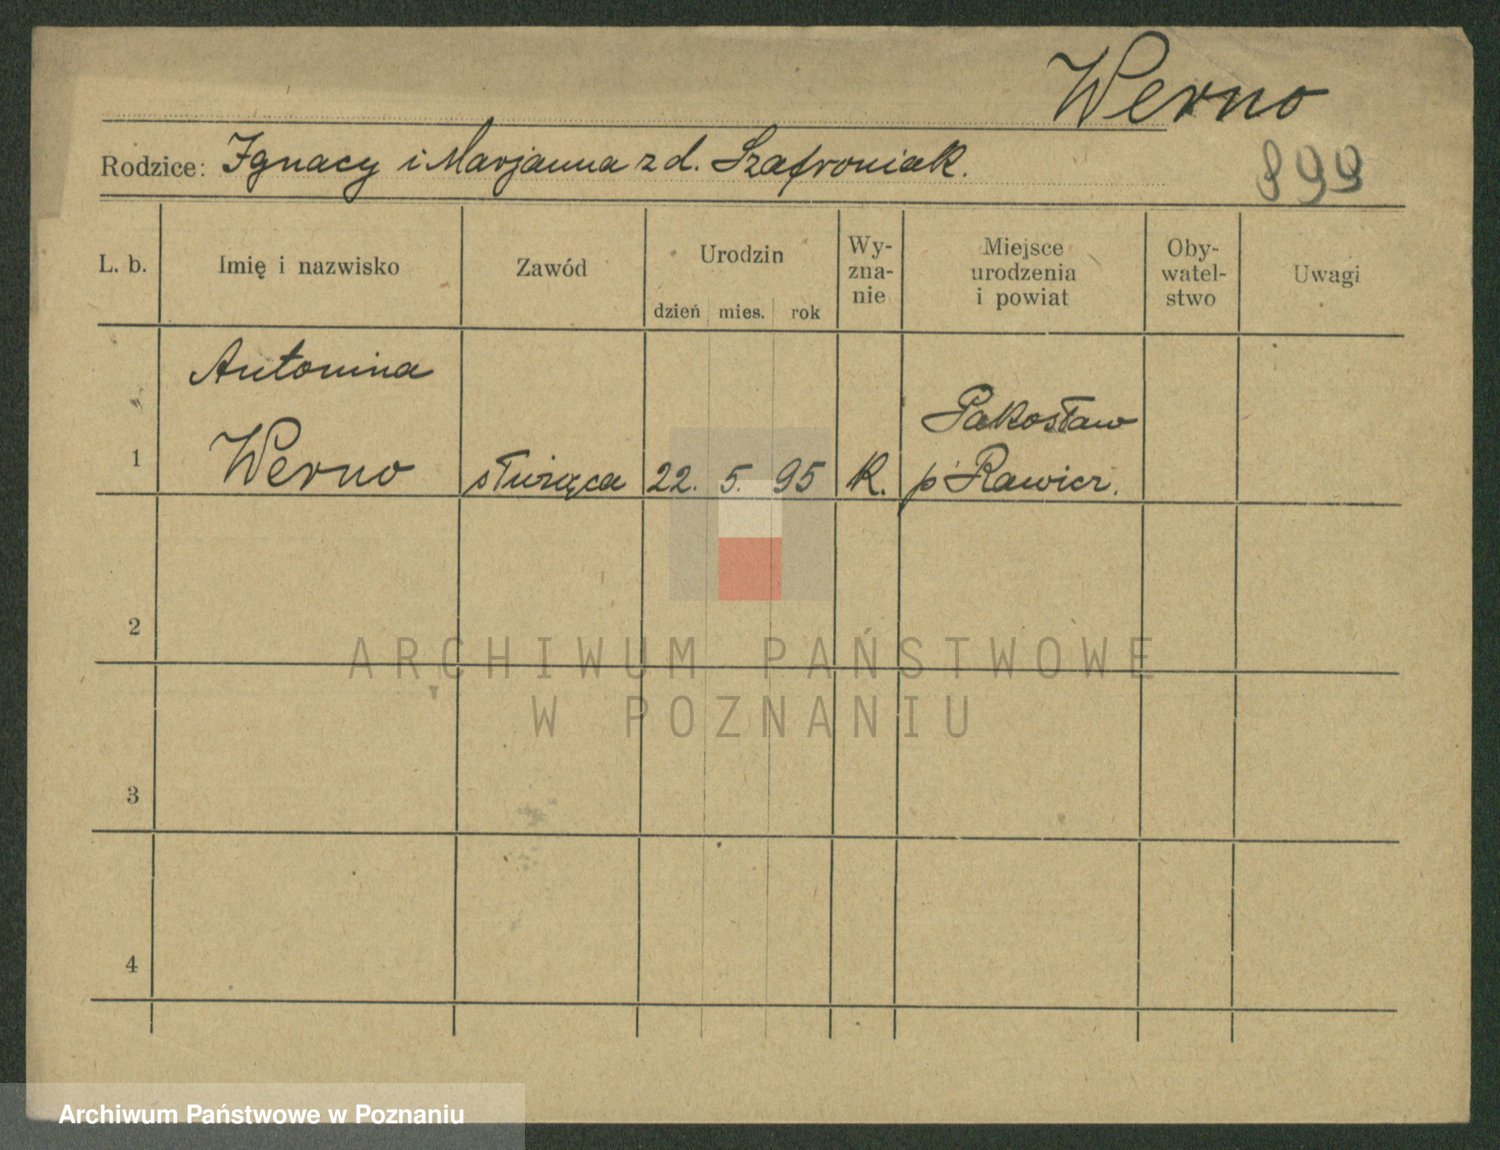 Werno
Rodzice: Ignacy i Marjanna z d. Szafroniak.
899
L. b.
Imię i nazwisko
Zawód
Urodzin
dzień mies. rok
Wy-
zna-
nie
Miejsce
urodzenia
i powiat
Oby-
watel-
stwo
Uwagi
Antonina
1 Werno służąca 22. 5. 95 K. Pakosław
p Rawicz.
2
3
4
ARCHIWUM PAŃSTWOWE
W POZNANIU
Archiwum Państwowe w Poznaniu